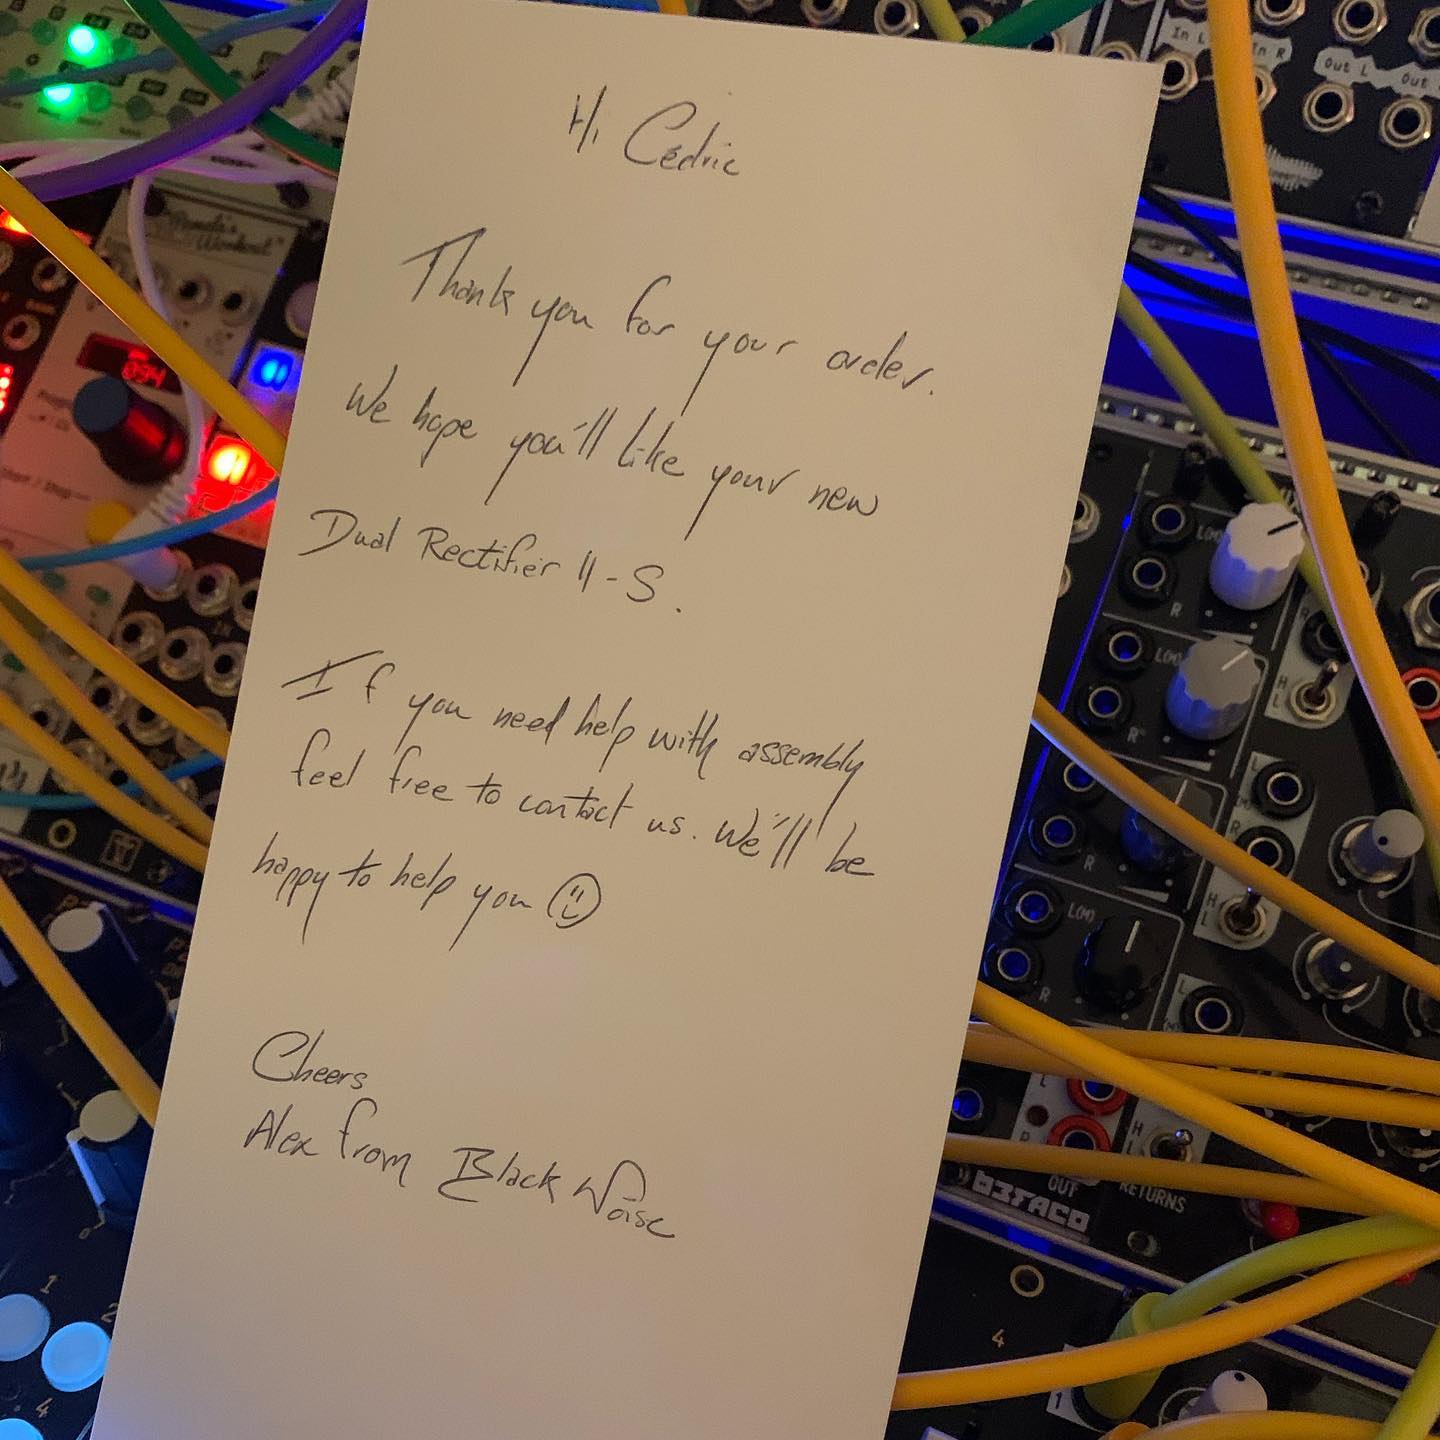 Hi Cédric
Thank you for your order.
We hope you'll like your new
Dual Rectifier II-S.
If you need help with assembly
feel free to contact us. We'll be
happy to help you ☺
Cheers
Alex from Black Noise
Pamela's
Workout
094
In L
In R
Out L
Out
L(M)
R
L(M)
R
H
L
L(M)
R
L
(M)
R
H
L
L(M)
R
L
(M)
R
L
H
L
OUT
RETURNS
BEFACO
1
2
4
4
1